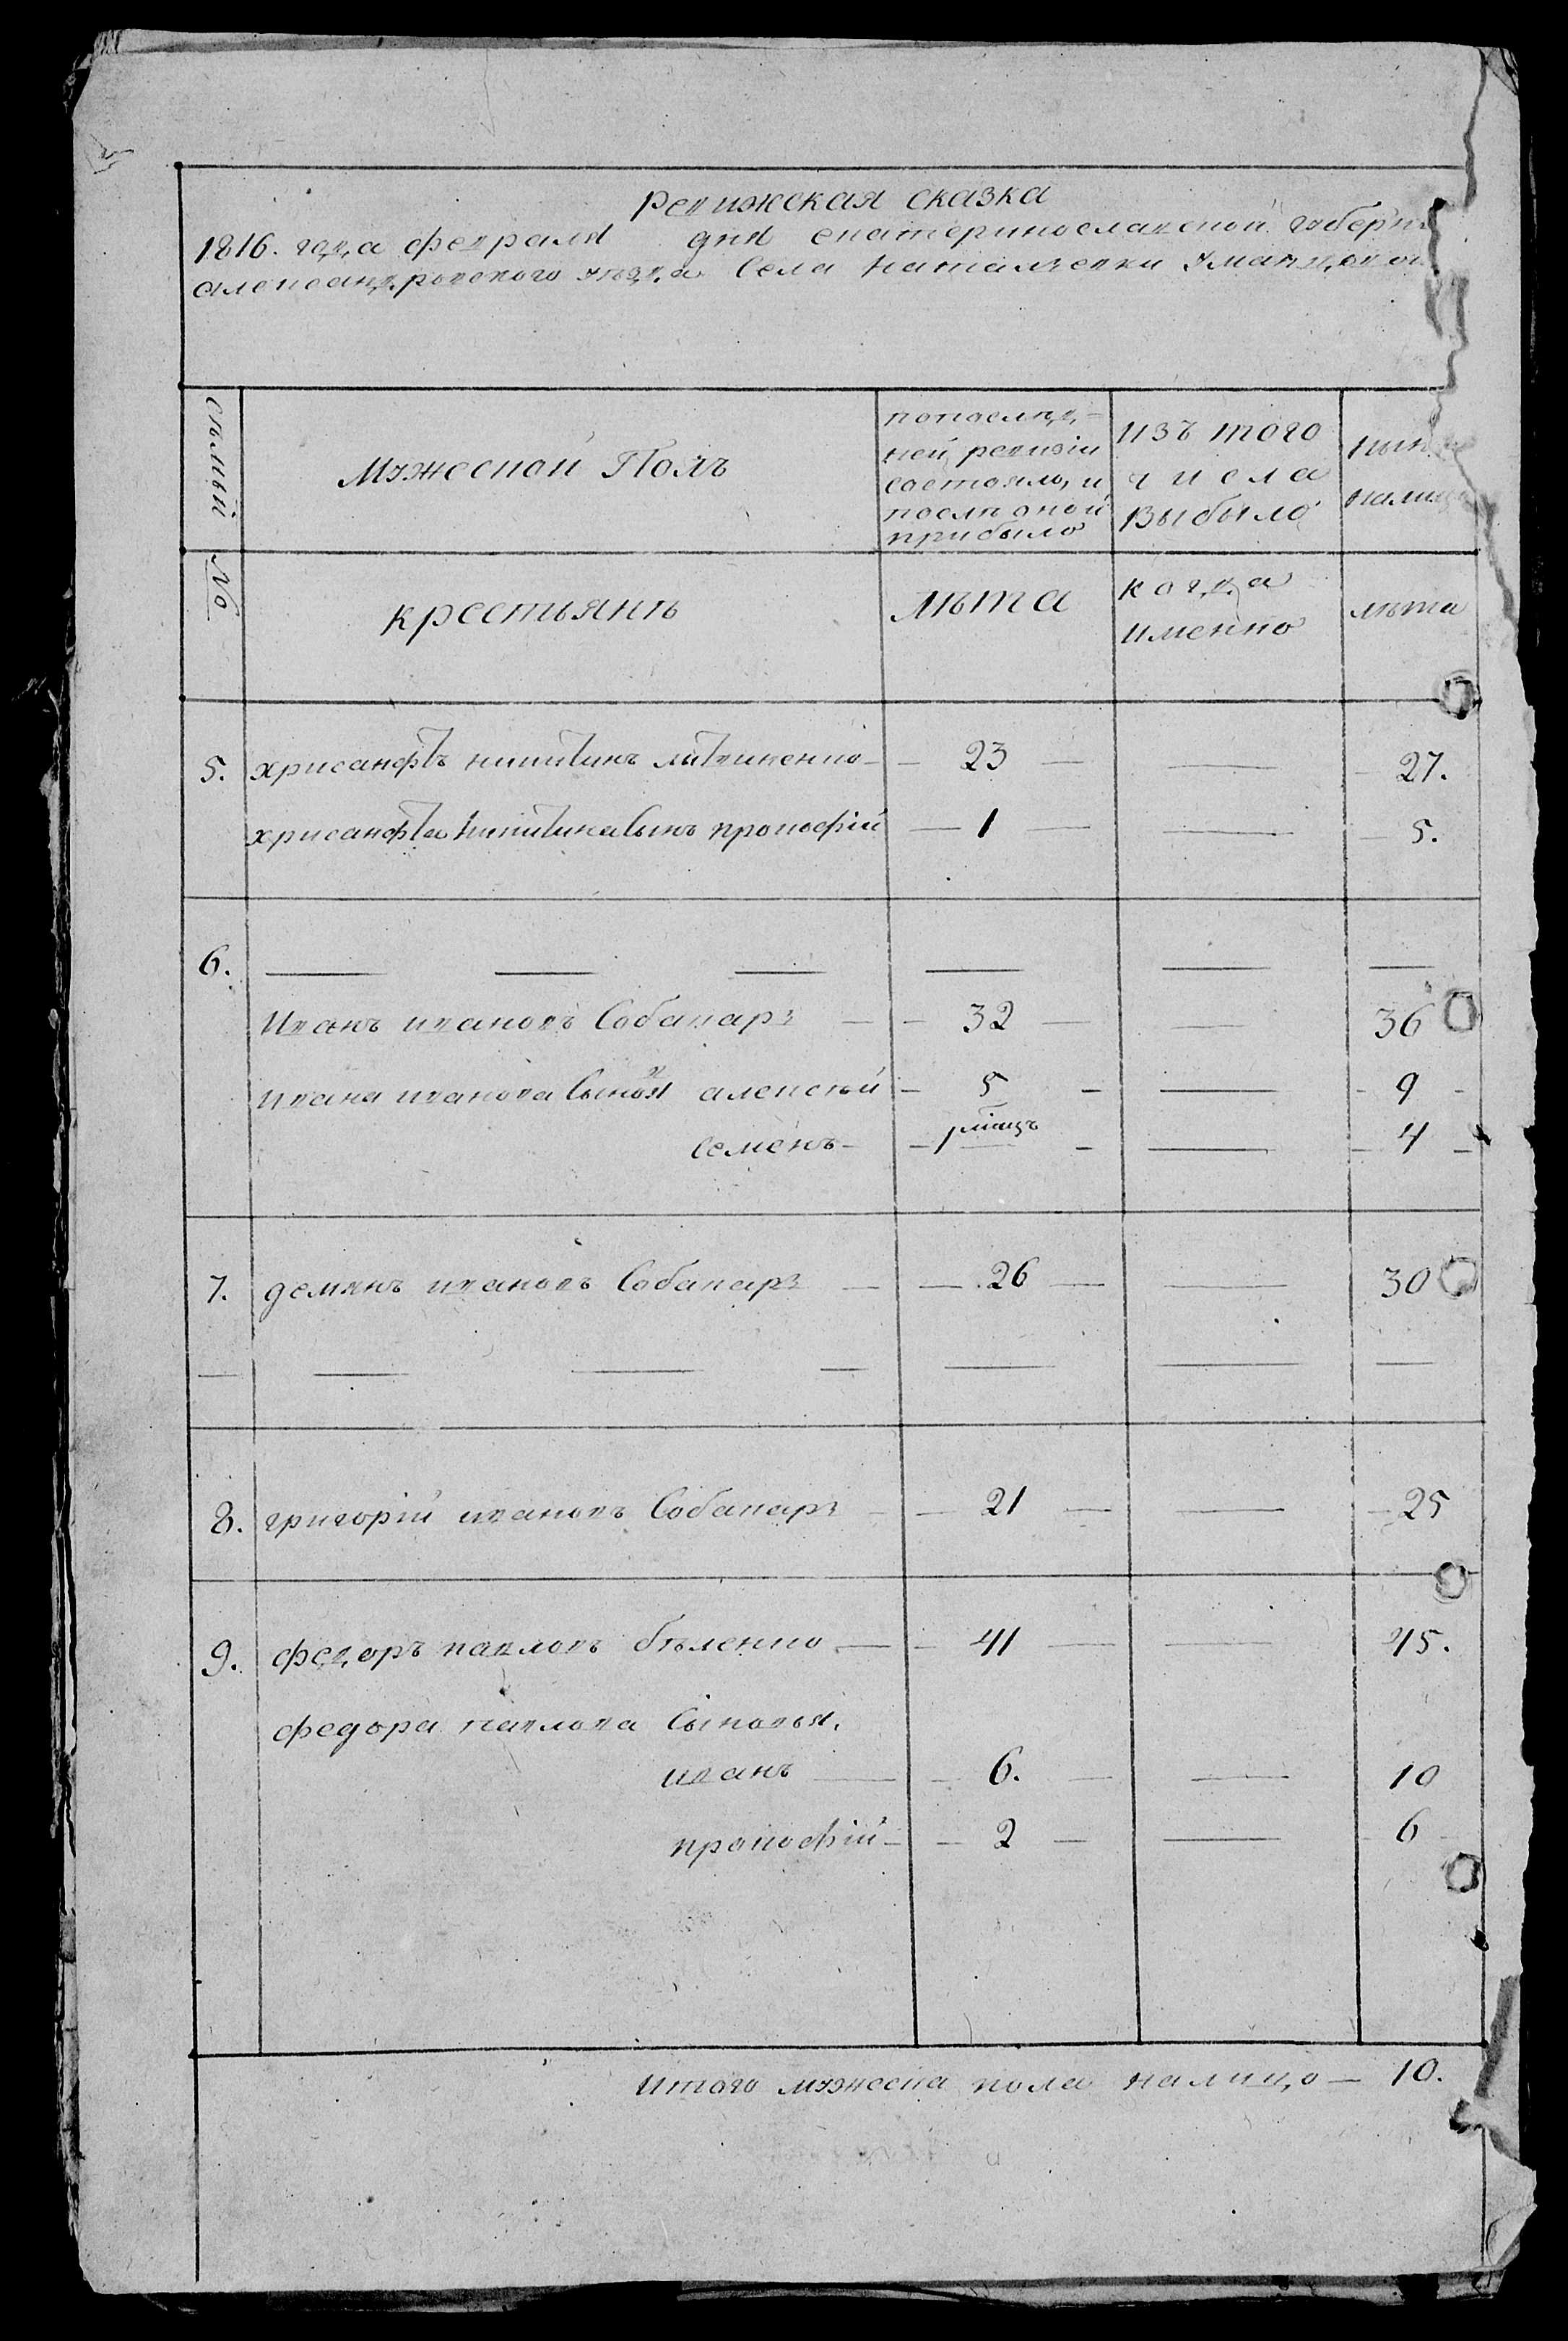 Ревижская сказка
1816. года февраля дня екатеринославской губерн
александровского уѣзда села наталѣевки
семьи №
Мужеской Полъ
по послѣд-
ней ревизіи
состояло, и
послѣ оной
прибыло
изъ того
числа
выбыло
нын
налиц
крестьянѣ
лѣта
когда
именно
лѣта
5. хрисанфъ никитинъ литвиненко — 23 — — 27.
хрисанфа никитина сынъ прокофій — 1 — — 5.
6. — — — — — —
иванъ ивановъ собакарь — 32 — — 36
ивана иванова сыновя алексѣй — 5 — — 9
семенъ — 1 мѣцъ — — 4
7. демянъ ивановъ собакарь — 26 — — 30
— — — — — — —
8. григорій ивановъ собакарь — 21 — — 25
9. федоръ павловъ бѣленко — 41 — — 45.
федора павлова сыновья.
иванъ — 6. — — 10
прокофій — 2 — — 6
итого мужеска пола налицо — 10.